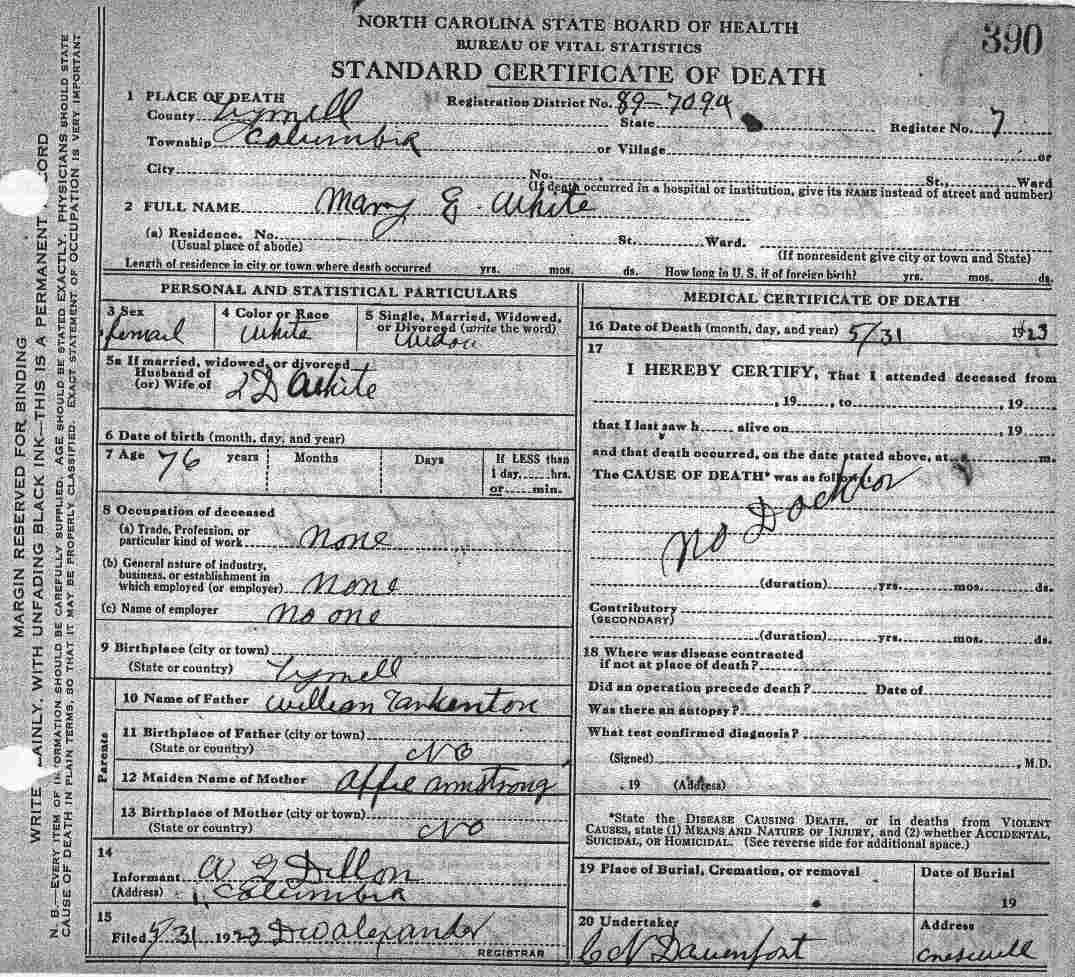 NORTH CAROLINA STATE BOARD OF HEALTH
BUREAU OF VITAL STATISTICS
STANDARD CERTIFICATE OF DEATH
390
1 PLACE OF DEATH
Registration District No. 89-7094
County Tyrrell State Register No. 7
Township Columbia or Village or
City No. St., Ward
(If death occurred in a hospital or institution, give its NAME instead of street and number)
2 FULL NAME Mary E. White
(a) Residence. No. St. Ward.
(Usual place of abode) (If nonresident give city or town and State)
Length of residence in city or town where death occurred yrs. mos. ds. How long in U. S. if of foreign birth? yrs. mos. ds.
PERSONAL AND STATISTICAL PARTICULARS
3 Sex 4 Color or Race 5 Single, Married, Widowed, or Divorced (write the word)
Femail White Widow
5a If married, widowed, or divorced
Husband of
(or) Wife of D White
6 Date of birth (month, day, and year)
7 Age 76 years Months Days If LESS than
1 day, hrs.
or min.
8 Occupation of deceased
(a) Trade, Profession, or
particular kind of work None
(b) General nature of industry,
business, or establishment in
which employed (or employer) None
(c) Name of employer No one
9 Birthplace (city or town)
(State or country) Tyrrell
Parents
10 Name of Father William Tarkenton
11 Birthplace of Father (city or town)
(State or country) NO
12 Maiden Name of Mother Affie Armstrong
13 Birthplace of Mother (city or town)
(State or country) NO
14
Informant Dillon
(Address) Columbia
15
Filed 5/31 1923 DW Alexander
REGISTRAR
MEDICAL CERTIFICATE OF DEATH
16 Date of Death (month, day, and year) 5/31 1923
17
I HEREBY CERTIFY, That I attended deceased from
, 19 , to , 19
that I last saw h alive on , 19
and that death occurred, on the date stated above, at m.
The CAUSE OF DEATH* was as follows:
No Docktor
(duration) yrs. mos. ds.
Contributory
(SECONDARY)
(duration) yrs. mos. ds.
18 Where was disease contracted
if not at place of death?
Did an operation precede death? Date of
Was there an autopsy?
What test confirmed diagnosis?
(Signed) , M.D.
, 19 (Address)
*State the DISEASE CAUSING DEATH, or in deaths from VIOLENT
CAUSES, state (1) MEANS AND NATURE OF INJURY, and (2) whether ACCIDENTAL,
SUICIDAL, OR HOMICIDAL. (See reverse side for additional space.)
19 Place of Burial, Cremation, or removal Date of Burial
19
20 Undertaker Address
C N Davenport Creswell
MARGIN RESERVED FOR BINDING
WRITE PLAINLY, WITH UNFADING BLACK INK—THIS IS A PERMANENT RECORD
N. B.—EVERY ITEM OF INFORMATION SHOULD BE CAREFULLY SUPPLIED. AGE SHOULD BE STATED EXACTLY. PHYSICIANS SHOULD STATE
CAUSE OF DEATH IN PLAIN TERMS, SO THAT IT MAY BE PROPERLY CLASSIFIED. EXACT STATEMENT OF OCCUPATION IS VERY IMPORTANT